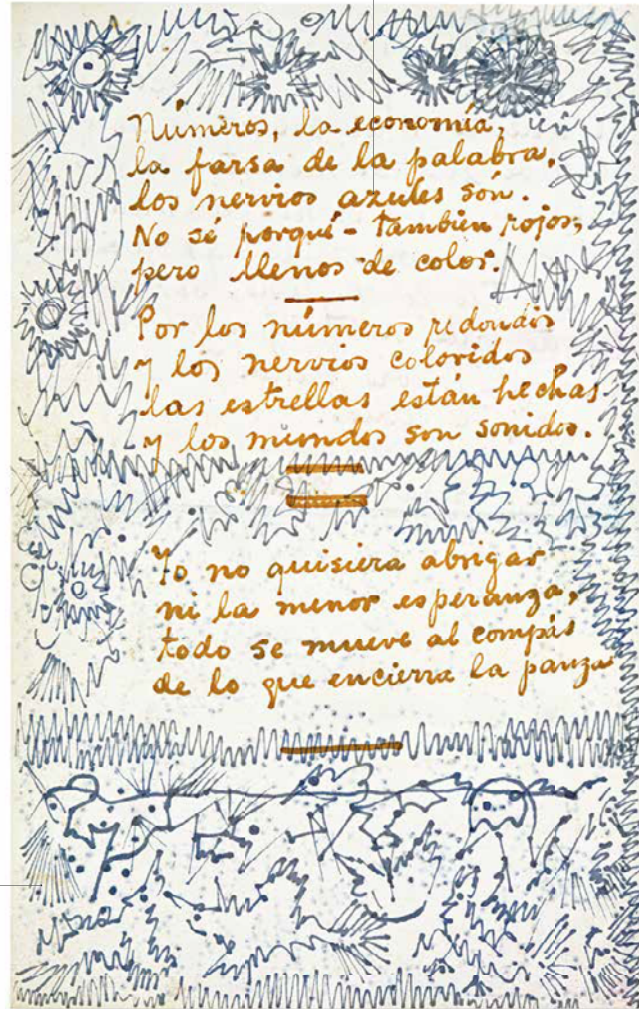 Números, la economía,
la farsa de la palabra,
los nervios azules són.
No sé porqué - también rojos,
pero llenos de color.
Por los números redondos
y los nervios coloridos
las estrellas están hechas
y los mundos son sonidos.
Yo no quisiera abrigar
ni la menor esperanza,
todo se mueve al compás
de lo que encierra la panza